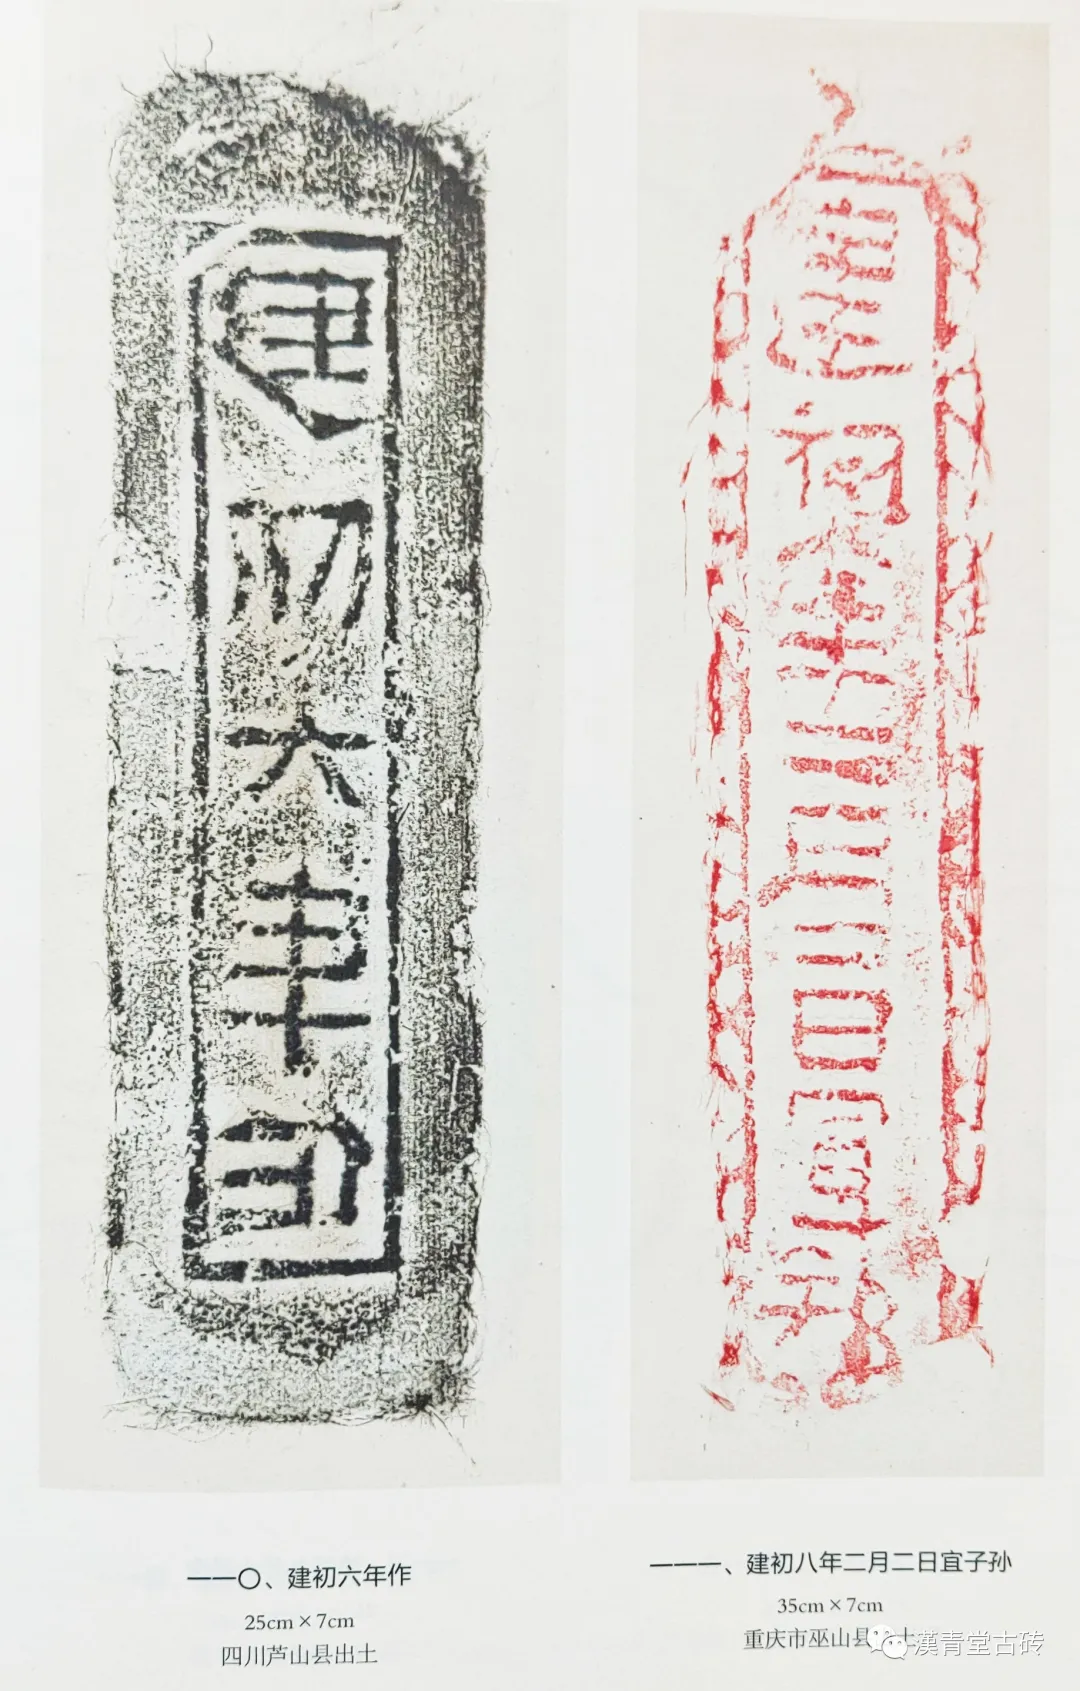 建初六年作
建初八年二月二日宜子孙
一一〇、建初六年作
25cm×7cm
四川芦山县出土
一一一、建初八年二月二日宜子孙
35cm×7cm
重庆市巫山县 土
漢青堂古砖